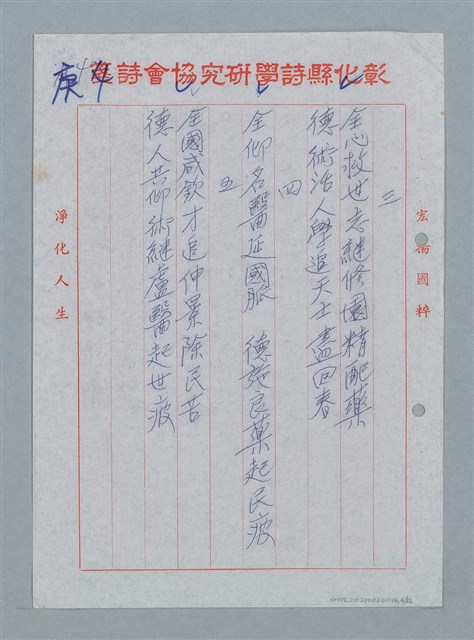 彰化縣詩學研究協會詩箋
庚 44
宏揚國粹
三
全心救世志繼修園精配藥
德術活人學追天士盡回春
四
全仰名醫延國脈 德施良藥起民疲
五
全國咸欽才追仲景除民苦
德人共仰術繼盧醫起世疲
淨化人生